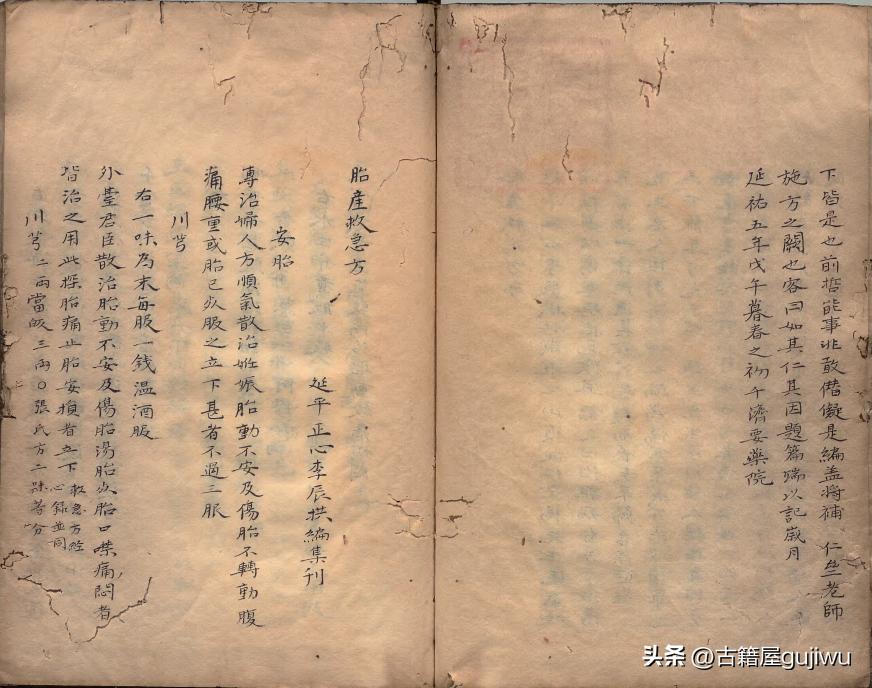 下皆是也前哲能事非敢僭儗是編盖将補　仁竺老師
施方之闕也客曰如其仁其因題篇端以記歲月
延祐五年戊午暮春之初千濟要藥院
胎産救急方
延平正心李辰拱編集刊
安胎
專治婦人方順氣散治姙娠胎動不安及傷胎不轉動腹
痛腰重或胎已死服之立下甚者不過三服
川芎
右一味為末每服一錢温酒服
外臺君臣散治胎動不安及傷胎湯胎死胎口噤痛悶者
皆治之用此探胎痛止胎安損者立下救急方經心錄並同
川芎二兩當皈三兩○張氏方二味等分
头条 @古籍屋gujiwu